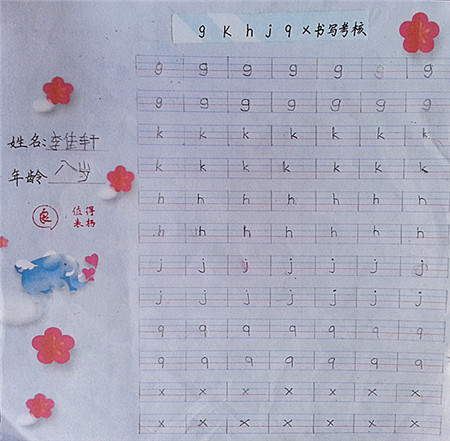 g K h j q x书写考核
姓名:李佳轩
年龄 八岁
良
值得
表扬
g g g g g g g
g g g g g g g
k k k k k k k
k k k k k k k
h h h h h h h
h h h h h h h
j j j j j j j
j j j j j j j
q q q q q q q
q q q q q q q
x x x x x x x
x x x x x x x